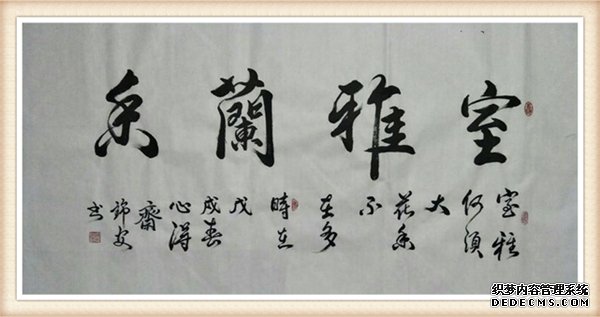 室雅蘭香
室雅
何須
大
花香
不
在多
時在
戊
戌春
心得
齋
书
织梦内容管理系统
DEDECMS.COM